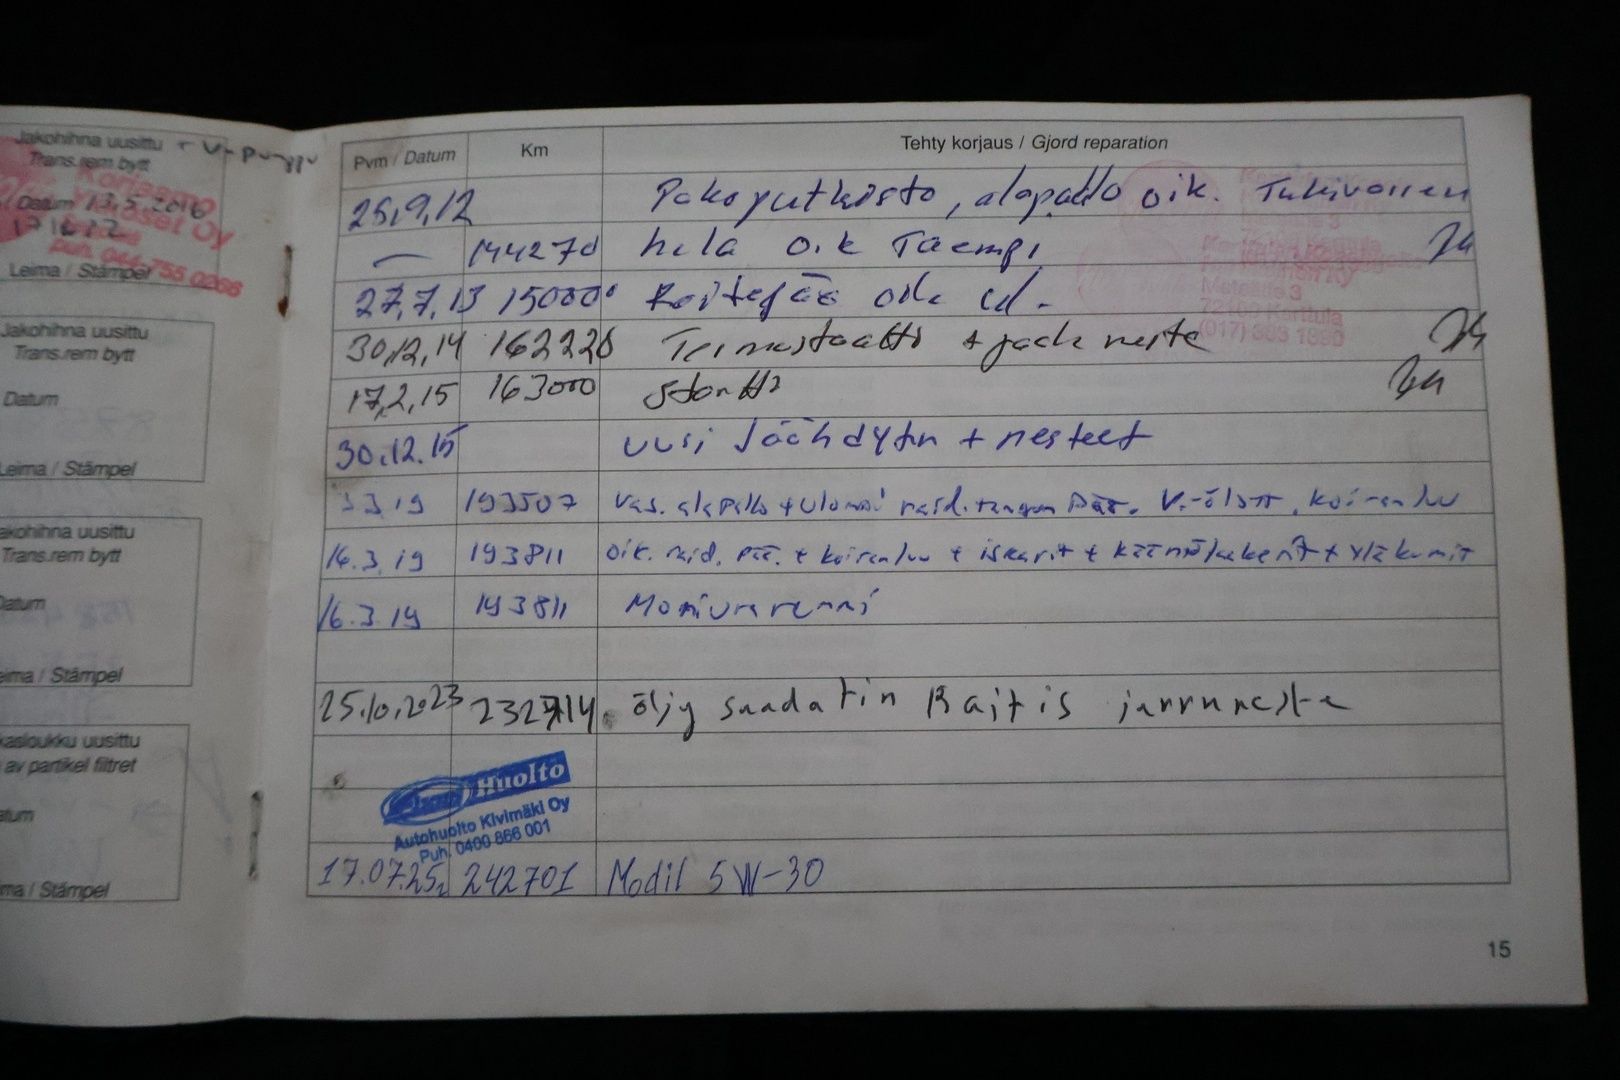 Jakohihna uusittu + V-pumppu
Trans.rem bytt
Datum 13.5.2016
Korjaamo
Oy
puh. 044-755 0266
Leima / Stämpel
Jakohihna uusittu
Trans.rem bytt
Datum
Leima / Stämpel
akohihna uusittu
Trans.rem bytt
Datum
eima / Stämpel
kasloukku uusittu
av partikel filtret
atum
ma / Stämpel
Pvm / Datum Km Tehty korjaus / Gjord reparation
25.9.12 Pakoputkisto, alapallo oik. Tukivarren
— 144270 hela oik Taempi
27.7.13 150000
30.12.14 162220 Termostaatti + jääh neste
17.2.15 163000 startti
30.12.15 uusi Jäähdytin + nesteet
3.3.19 193507 Vas. alapallo + ulompi raid.tangon pää. koiranluu
16.3.19 193811 oik. raid. pää. + koiranluu + iskarit + + yläkumit
16.3.19 193811 Moniurahihna
25.10.2023 232714 öljy suodatin Raitis jarruneste
Huolto
Autohuolto Kivimäki Oy
Puh. 0400 866 001
17.07.25 242701 Modil 5W-30
Metsätie 3
72100 Karttula
(017) 383 1890
15